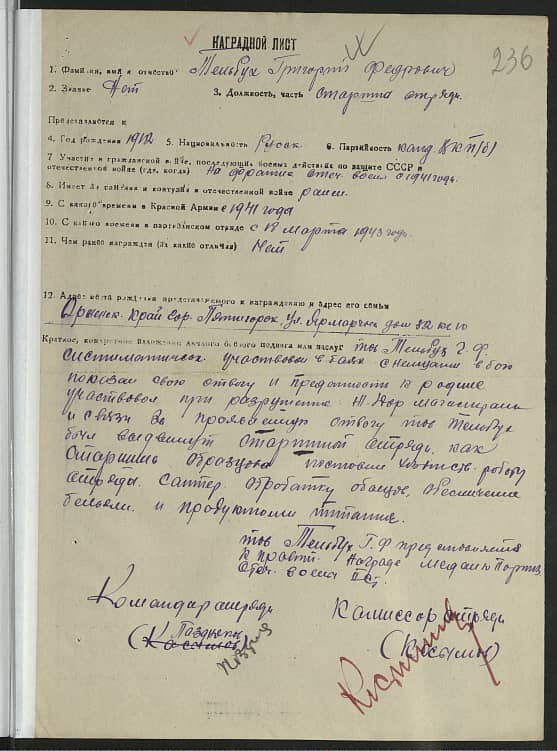 236
НАГРАДНОЙ ЛИСТ
1. Фамилия, имя и отчество Тельбух Григорий Федрович
2. Звание Нет 3. Должность, часть старшина отряда.
Представляется к
4. Год рождения 1912 5. Национальность Русск 6. Партийность канд ВКП(б)
7. Участие в гражданской войне, последующих боевых действиях по защите СССР и
отечественной войне (где, когда) На фронте отеч. воен с 1941 год.
8. Имеет ли ранения и контузии в отечественной войне ранен.
9. С какого времени в Красной Армии с 1941 года
10. С какого времени в партизанском отряде с 18 марта 1943 год.
11. Чем ранее награжден (за какие отличия) Нет
12. Адрес места рождения представляемого к награждению и адрес его семьи
край гор. Пятигорск, ул. Ярмарочн дом 32
Краткое, конкретное изложение личного боевого подвига или заслуг тов Тельбух Г.Ф.
систиматическ участвовал в боях с немцами в бою
показал свою отвагу и преданность к родине
участвовал при разрушение Ж.дор магистрали
и связи За проявленную отвагу тов Тельбух
был выдвинут старшиной отряда, как
Старшина образцово поставил хозяйств. работу
отряда. обработку
бельем. и продуктами питания.
тов Тельбух Г.Ф представляется
к правит. Награде Медаль Партиз.
Отеч. воен II ст.
Командир отряда
Комиссар отряда